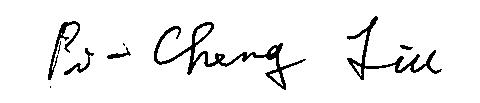 Pi-Cheng Liu